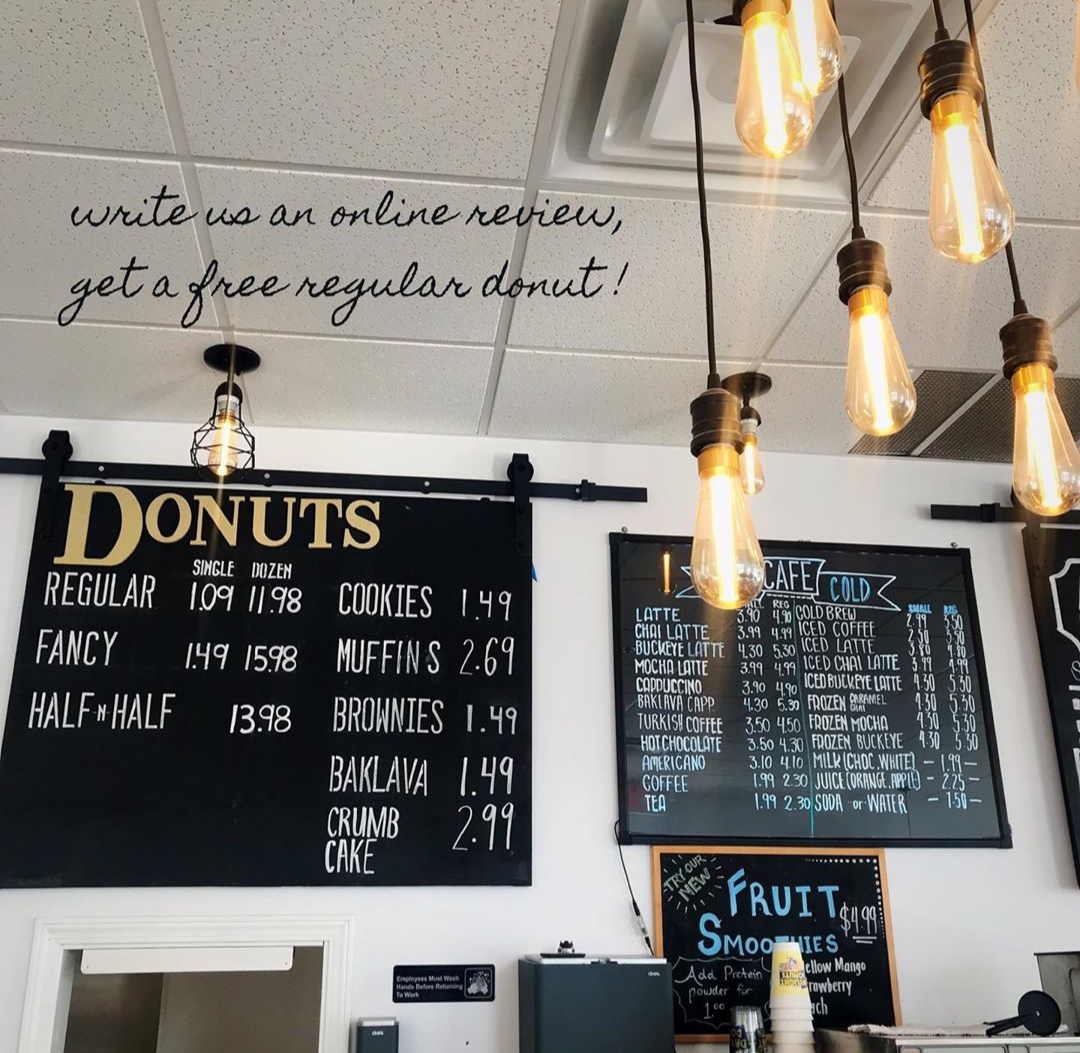 write us an online review,
get a free regular donut!
DONUTS
SINGLE DOZEN
REGULAR 1.09 11.98
FANCY 1.49 15.98
HALF N HALF 13.98
COOKIES 1.49
MUFFINS 2.69
BROWNIES 1.49
BAKLAVA 1.49
CRUMB
CAKE 2.99
CAFE
REG
LATTE 3.90 4.90
CHAI LATTE 3.99 4.99
BUCKEYE LATTE 4.30 5.30
MOCHA LATTE 3.99 4.99
CAPPUCCINO 3.90 4.90
BAKLAVA CAPP 4.30 5.30
TURKISH COFFEE 3.50 4.50
HOT CHOCOLATE 3.50 4.30
AMERICANO 3.10 4.10
COFFEE 1.99 2.30
TEA 1.99 2.30
COLD
SMALL REG
COLD BREW 2.99 3.50
ICED COFFEE 2.50 3.50
ICED LATTE 3.80 4.80
ICED CHAI LATTE 3.99 4.99
ICED BUCKEYE LATTE 4.30 5.30
FROZEN CARAMEL 4.30 5.30
CHAI
FROZEN MOCHA 4.30 5.30
FROZEN BUCKEYE 4.30 5.30
MILK (CHOC, WHITE) - 1.99 -
JUICE (ORANGE, APPLE) - 2.25 -
SODA or WATER - 1.50 -
TRY OUR
NEW
FRUIT
SMOOTHIES
$4.99
Add Protein
powder for
1.00
Mango
Employees Must Wash
Hands Before Returning
To Work